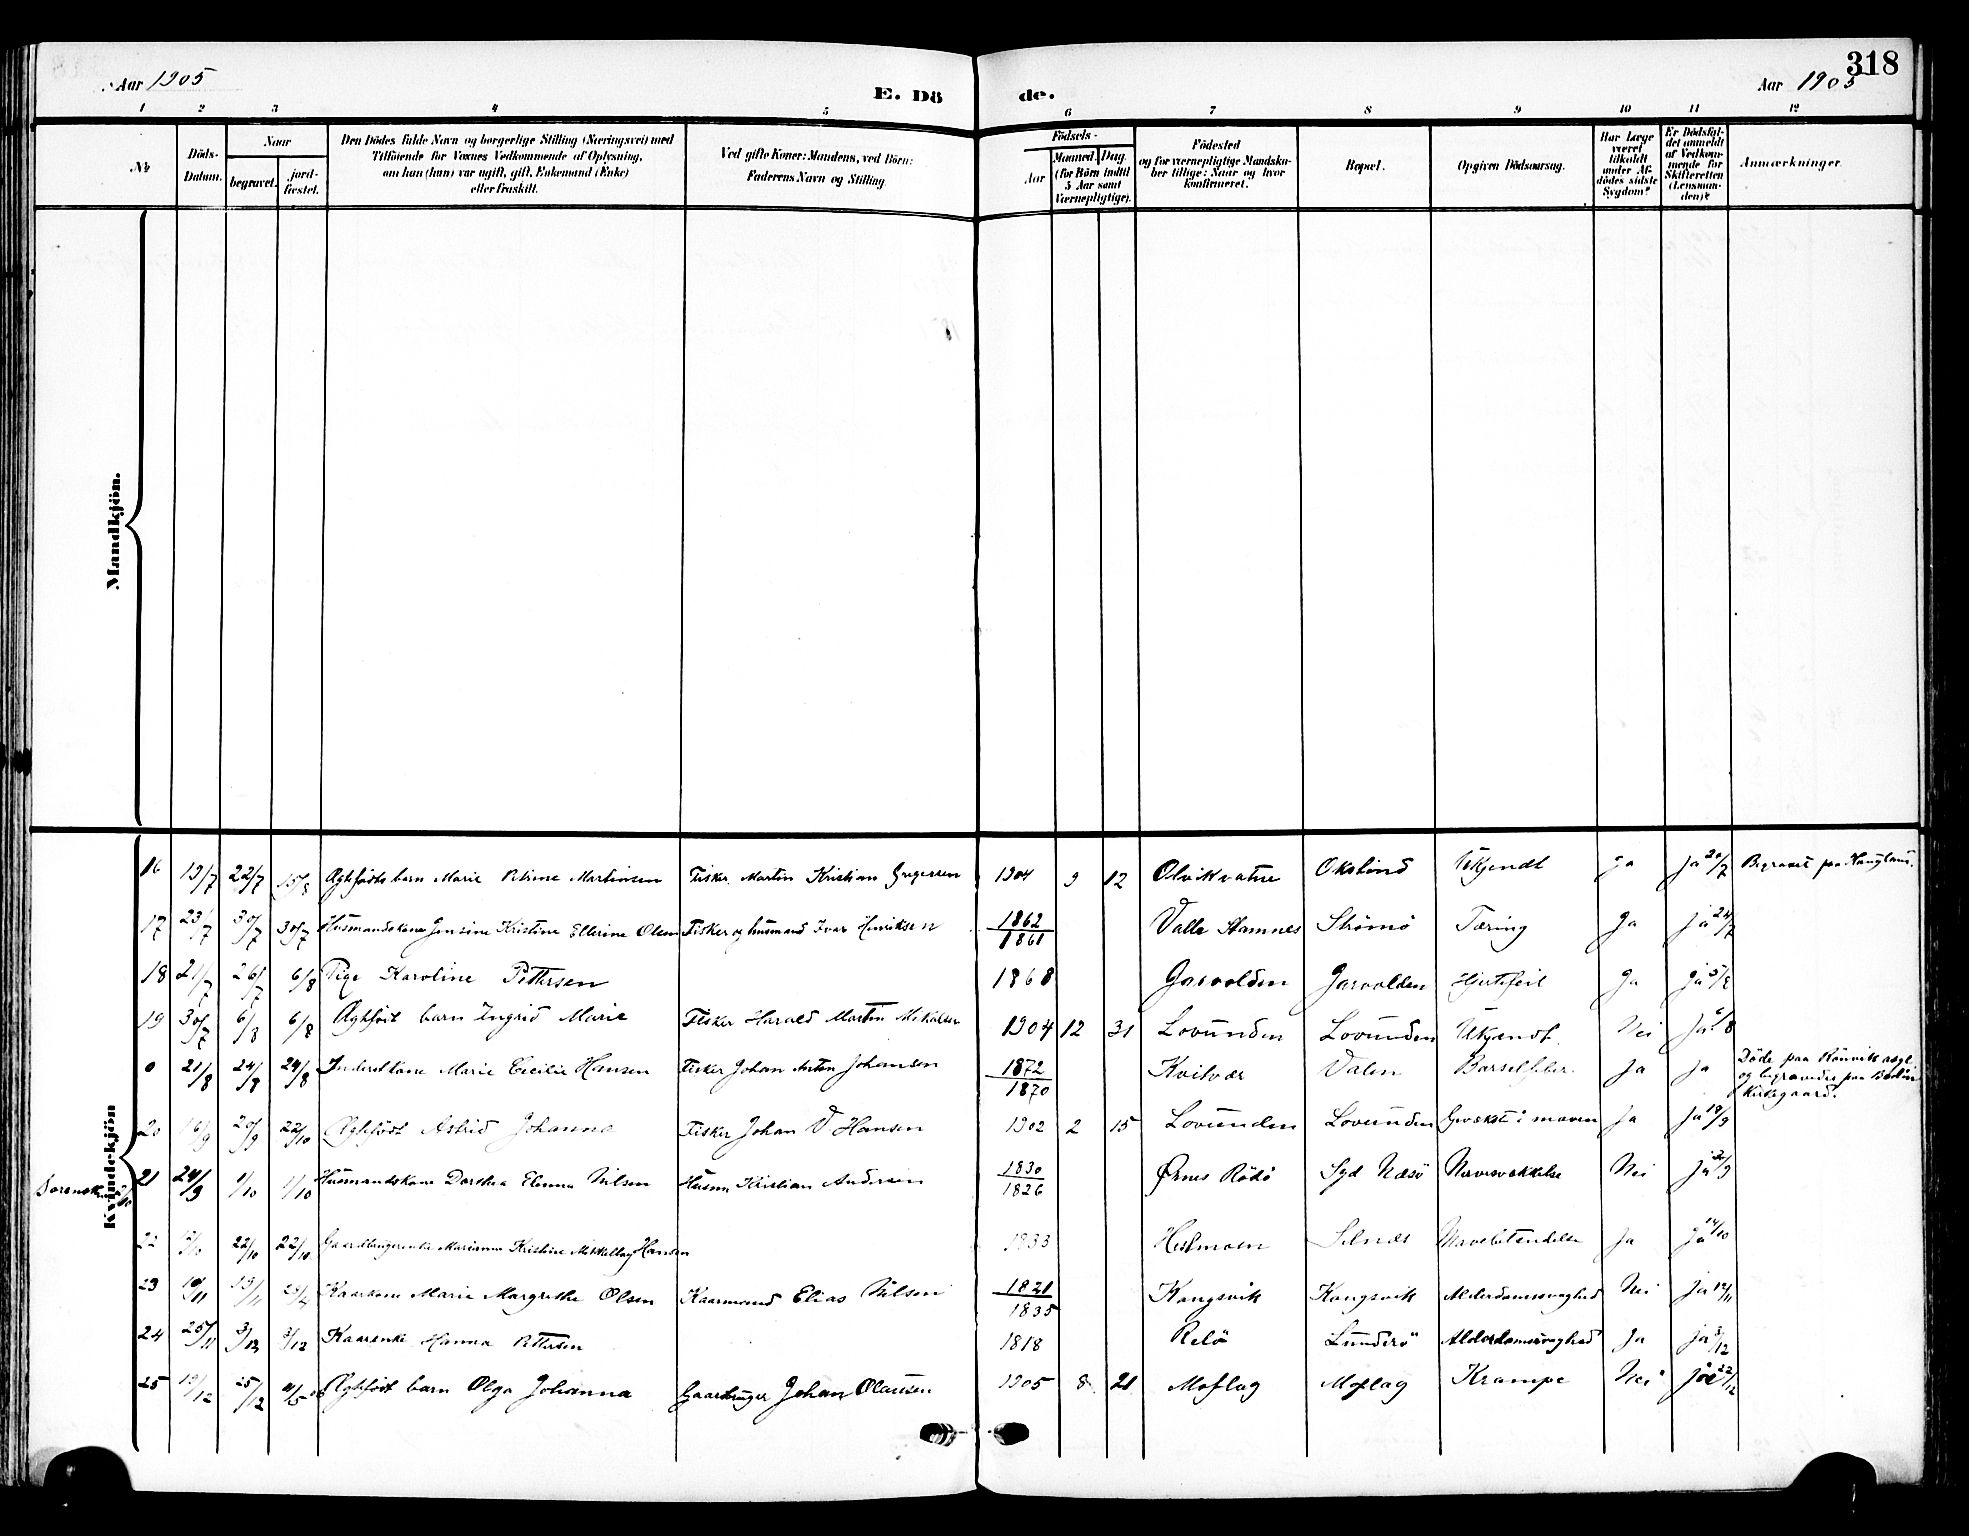 318
Aar 1905
E. Dö
de.
Aar 1905
1 2 3 4 5 6 7 8 9 10 11 12
No
Döds-Datum.
Naar
begravet.
jord-fæstet.
Den Dödes fulde Navn og borgerlige Stilling (Næringsvei) med
Tilföiende for Voxnes Vedkommende af Oplysning,
om han (hun) var ugift, gift, Enkemand (Enke)
eller fraskilt.
Ved gifte Koner: Mandens, ved Börn:
Faderens Navn og Stilling
Födsels-
Aar
Maaned. Dag.
(for Börn indtil
5 Aar samt
Værnepligtige).
Födested
og for værnepligtige Mandska-
ber tillige: Naar og hvor
konfirmeret.
Bopæl.
Opgiven Dödsaarsag.
Har Læge
været
tilkaldt
under Af-
dödes sidste
Sygdom?
Er Dödsfal-
det anmeldt
af Vedkom-
mende for
Skifteretten
(Lensman-
den)?
Anmærkninger.
Mandkjön.
Kvindekjön
16 19/7 22/7 15/8 Ægtefødt barn Marie Petrine Martinsen Fisker Martin Kristian Gregersen 1904 9 12 Olvikvatne Okstind Ukjendt Ja Ja 20/7 Begravet paa
17 23/7 30/7 30/7 Husmandskone Jensine Kristine Ellerine Olsen Fisker og husmand Ivar Henriksen 1862 1861 Valle Hamnes Strømø Tæring Ja Ja 24/7
18 21/7 26/7 6/8 Pige Karoline Pettersen 1868 Gasvolden Gasvolden Hjertefeil Ja Ja 5/8
19 30/7 6/8 6/8 Ægtefødt barn Ingrid Marie Fisker Harald Martin Mikalsen 1904 12 31 Lovunden Lovunden Ukjendt Nei Ja 6/8
0 21/8 24/8 24/8 Inderstkone Marie Cecilie Hansen Fisker Johan Anton Johansen 1872 1870 Kvitvær Valen Barselfeber Ja Ja Døde paa Rønvik asyl
og begravedes paa Bodin
Kirkegaard.
20 16/9 20/9 22/10 Ægtefødt Astrid Johanna Fisker Johan V Hansen 1902 2 15 Lovunden Lovunden Gevækst i maven Ja Ja 19/9
21 24/9 1/10 1/10 Husmandskone Dorthea Elenna Nilsen Husm. Kristian Andersen 1830 1826 Ørnes Rödö Syd Næsö Nervesvækkelse Nei Ja
22 22/10 22/10 Gaardbrugerenke Marianna Kristine Mikkelborg Hansen 1833 Hestmoen Selnæs Mavebetændelse Ja Ja 14/10
23 19/11 Kaarkone Marie Margrethe Olsen Kaarmand Elias Nilsen 1821 1835 Kongsvik Kongsvik Alderdomssvaghed Nei Ja
24 25/11 3/12 3/12 Kaarenke Hanna Pettersen 1818 Relö Lunderö Alderdomssvaghed Ja Ja 3/12
25 19/12 25/12 Ægtefødt barn Olga Johanna Gaardbruger Johan Olaussen 1905 8 21 Moflag Moflag Krampe Nei Ja 22/12